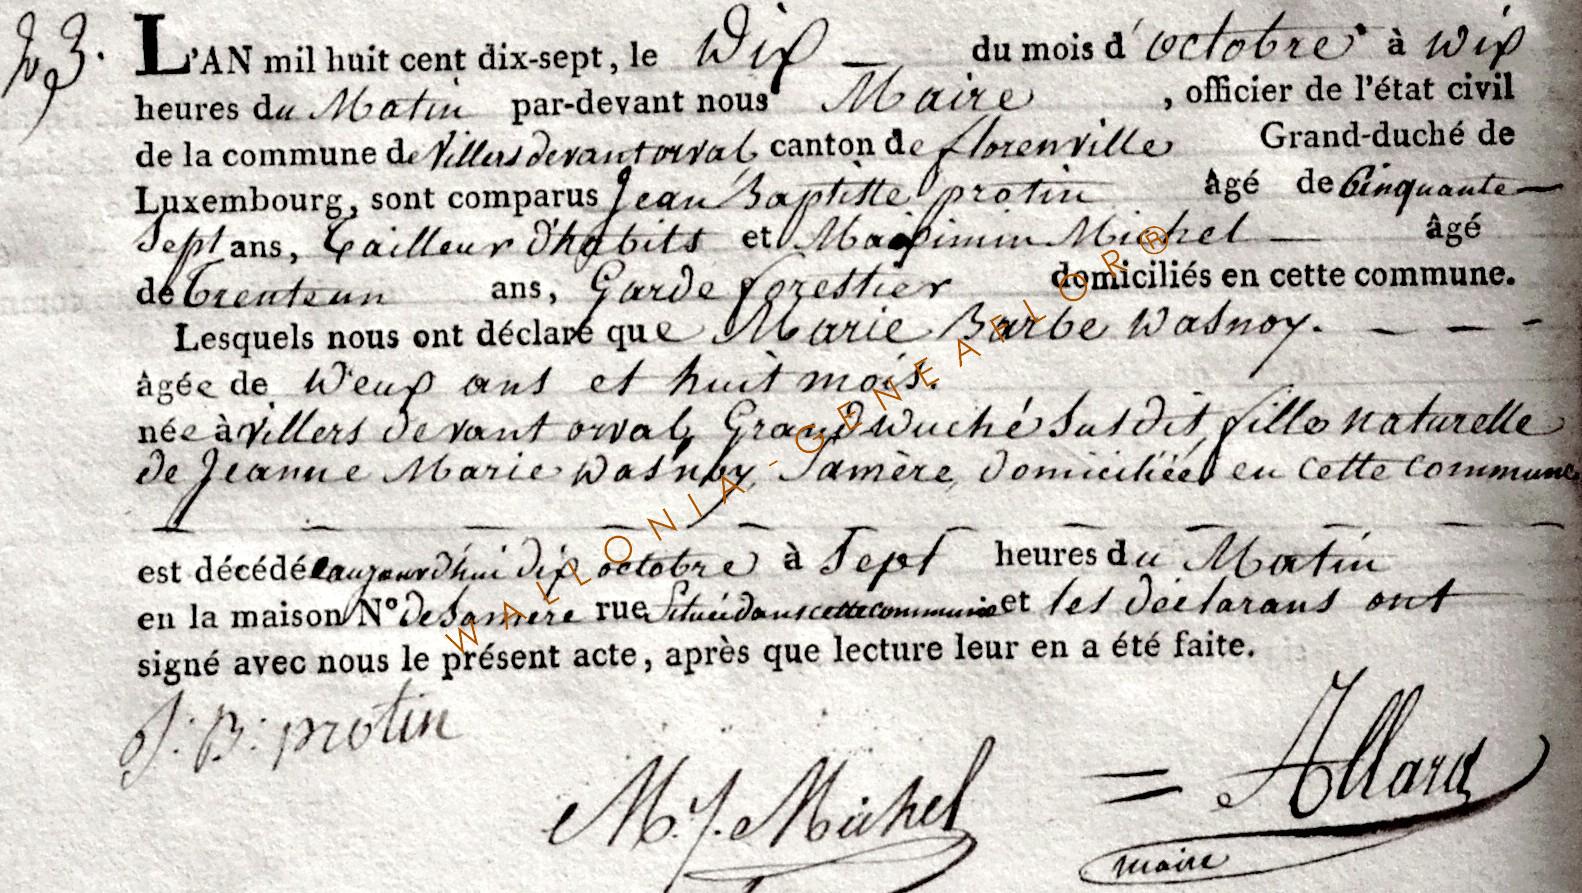 23.
L'AN mil huit cent dix-sept, le Dix — du mois d'octobre à Dix
heures du Matin par-devant nous Maire , officier de l'état civil
de la commune de Villers devant orval, canton de florenville Grand-duché de
Luxembourg, sont comparus Jean Baptiste protin âgé de Cinquante —
Sept ans, Tailleur d'habits et Maximin Michel — âgé
de trenteun ans, Garde forestier domiciliés en cette commune.
Lesquels nous ont déclaré que Marie Barbe Wasnoy. — — -
âgée de Deux ans et huit mois.
née à Villers devant orval, Grand Duché Susdit, fille naturelle
de Jeanne Marie Wasnoy, Samère, domiciliée en cette commune
est décédée aujourd'hui dix octobre à Sept heures du Matin
en la maison N° de Samère rue Située dans cette commune et les déclarans ont
signé avec nous le présent acte, après que lecture leur en a été faite.
J: B: protin
M. J. Michel
= Allard
maire
WALLONIA-GENEAFLOR®